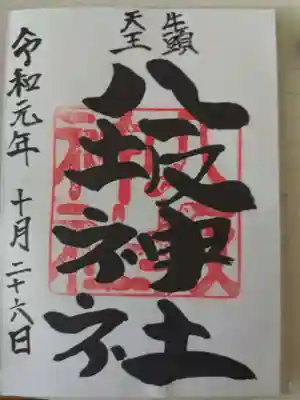 牛頭
天王
八坂神社
八坂
神社
令和元年 十月二十六日